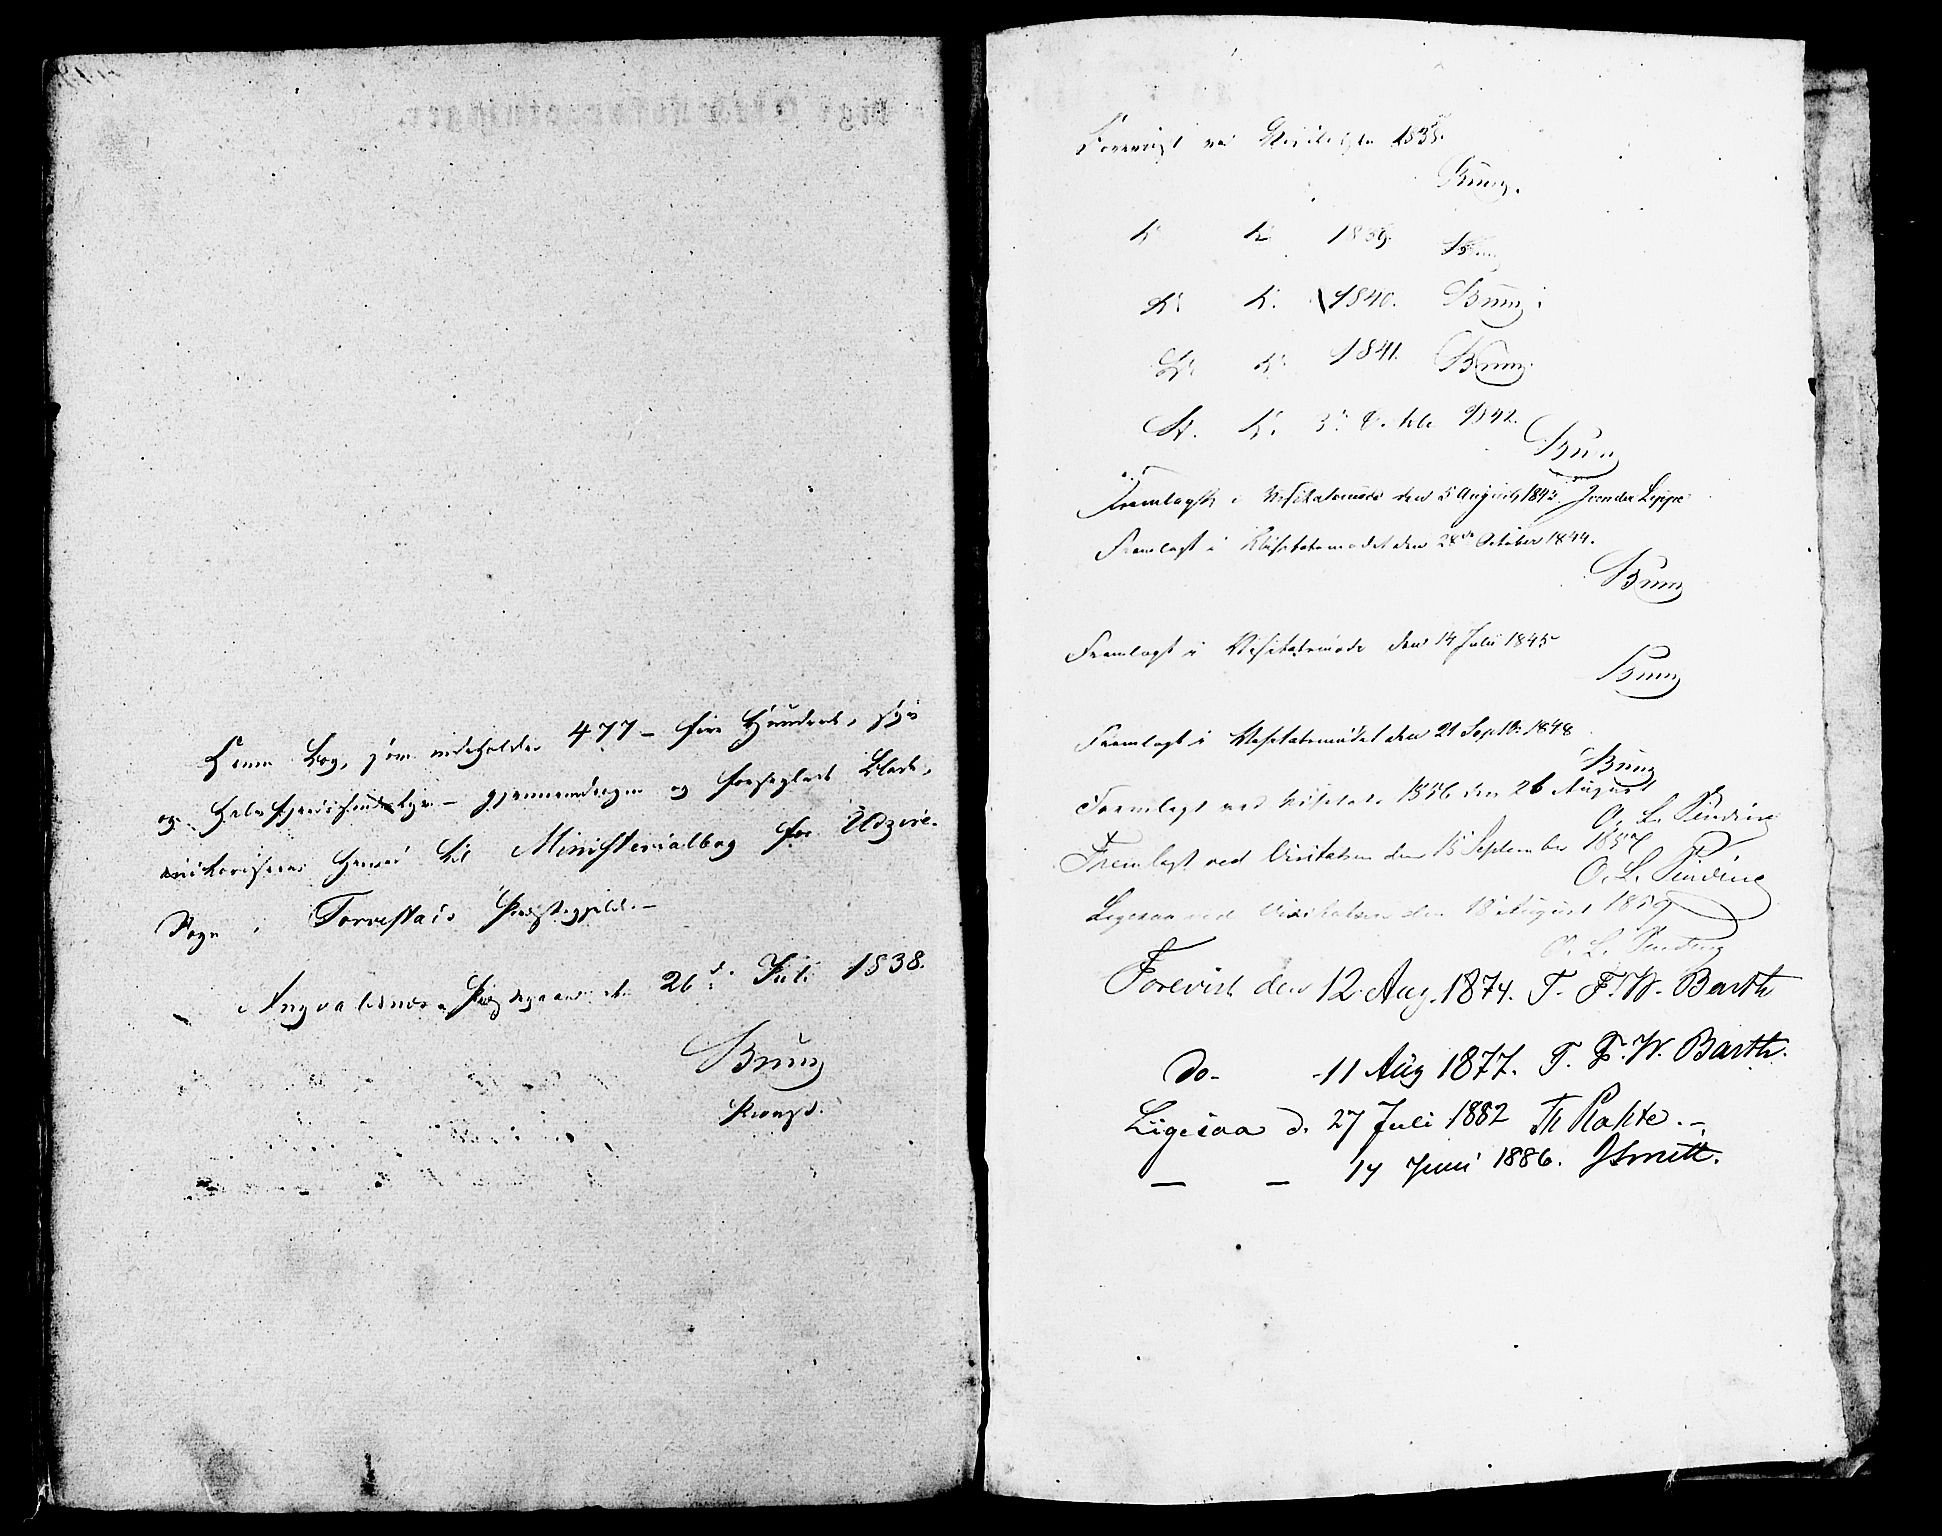 Denne Bog, som indeholder 477 - fire Hundrede, syv
og halvfjerdsindstyve - gjennemdragne og forseglede Blade,
autoriseres herved til Ministerialbog for Udzire-
Sogn i Torvestads Præstegjeld. -
Augvaldsnæs Præstegaard den 26d: Juli 1838.
Brun
Provst.
Foreviist ved Visitatsen 1838.
Brun.
D. D. 1839. Brun
D. D. 1840. Brun
D. D. 1841. Brun
D. D. 1842.
Brun
Fremlagt i Visitatsmødet den 5 August 1843 von der Lippe
Fremlagt i Visitatsmødet den 28de October 1844.
Brun
Fremlagt i Visitatsmøde den 14 Juli 1845
Brun
Fremlagt i Visitatsmødet den 21 Septb: 1848
Brun
Fremlagt ved Visitats 1856 den 26 August
O. L. Sinding
Fremlagt ved Visitatsen den 15 September 1857
O. L. Sinding
Ligesaa ved Visitatsen den 18 August 1859
O. L. Sinding
Forevist den 12 Aug. 1874. T. F. W. Barth
do - - 11 Aug 1877. T. F. W. Barth.
Ligesaa d. 27 Juli 1882 Th Rohte. -
— — 14 Juni 1886. J Smitt.